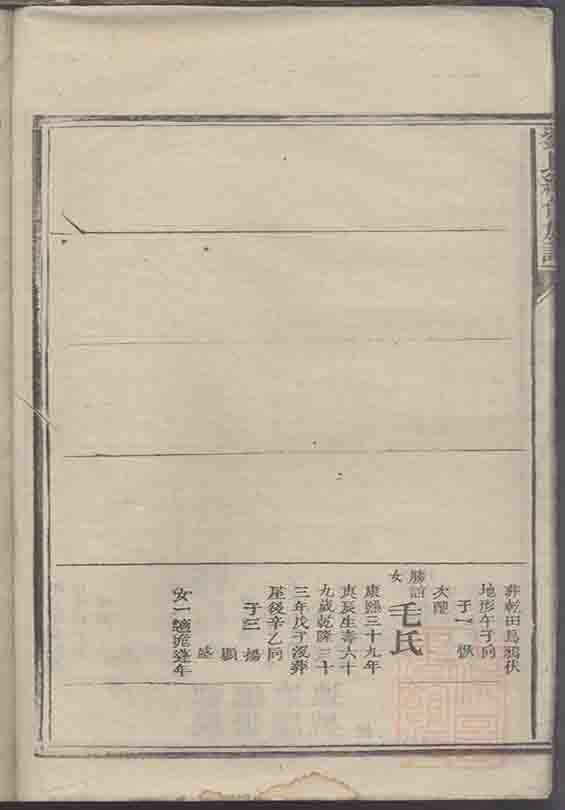 葬乾田烏鴉伏
地形午子向
子一
次配
勝韶女毛氏
康熙三十九年
庚辰生壽六十
九歲乾隆三十
三年戊子歿葬
屋後辛乙向
子三 揚
顯
盛
女一適龍逢年
氏續修族譜